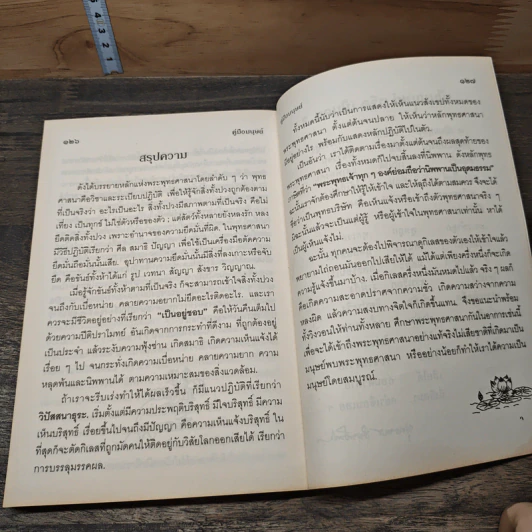 ๑๒๖
คู่มือมนุษย์
สรุปความ
ดังได้บรรยายหลักแห่งพระพุทธศาสนาโดยลำดับ ๆ ว่า พุทธ
ศาสนาคือวิชาและระเบียบปฏิบัติ เพื่อให้รู้จักสิ่งทั้งปวงถูกต้องตาม
ที่เป็นจริงว่า อะไรเป็นอะไร สิ่งทั้งปวงมีสภาพตามที่เป็นจริง คือไม่
เที่ยง เป็นทุกข์ ไม่ใช่ตัวหรือของตัว แต่สัตว์ทั้งหลายยังหลงรัก หลง
ยึดติดสิ่งทั้งปวง เพราะอำนาจของความยึดที่ผิด ในพุทธศาสนา
มีวิธีปฏิบัติเรียกว่า ศีล สมาธิ ปัญญา เพื่อใช้เป็นเครื่องมือตัดความ
ยึดมั่นถือมั่นนั้นเสีย อุปาทานความยึดมั่นนั้นมีสิ่งที่ลงเกาะหรือจับ
ยึด คือขันธ์ทั้งห้าได้แก่ รูป เวทนา สัญญา สังขาร วิญญาณ
เมื่อรู้จักขันธ์ทั้งห้าตามที่เป็นจริง ก็จะสามารถเข้าใจสิ่งทั้งปวง
จนถึงกับเบื่อหน่าย คลายความอยากไม่ยึดอะไรติดอะไร และเรา
ควรจะมีชีวิตอยู่อย่างที่เรียกว่า "เป็นอยู่ชอบ" คือให้วันคืนเต็มไป
ด้วยความปีติปราโมทย์ อันเกิดจากการกระทำที่ดีงาม ที่ถูกต้องอยู่
เป็นประจำ แล้วระงับความฟุ้งซ่าน เกิดสมาธิ เกิดความเห็นแจ้งได้
เรื่อย ๆ ไป จนกระทั่งเกิดความเบื่อหน่าย คลายความอยาก ความ
หลุดพ้นและนิพพานได้ ตามความเหมาะสมของสิ่งแวดล้อม
ถ้าเราจะรีบเร่งทำให้ได้ผลเร็วขึ้น ก็มีแนวปฏิบัติที่เรียกว่า
วิปัสสนาธุระ เริ่มตั้งแต่มีความประพฤติบริสุทธิ์ มีใจบริสุทธิ์ มีความ
เห็นบริสุทธิ์ เรื่อยขึ้นไปจนถึงมีปัญญา คือความเห็นแจ้งบริสุทธิ์ ใน
ที่สุดก็จะตัดกิเลสที่ผูกมัดคนให้ติดอยู่กับวิสัยโลกออกเสียได้ เรียกว่า
การบรรลุมรรคผล
คู่มือมนุษย์
๑๒๗
ทั้งหมดนี้นับว่าเป็นการแสดงให้เห็นแนวสังเขปทั้งหมดของ
พระพุทธศาสนา ตั้งแต่ต้นจนปลาย ให้เห็นว่าหลักพุทธศาสนา
อย่างไร พร้อมกับแสดงหลักปฏิบัติไปในตัว
เป็นอันว่า เราได้ติดตามเรื่องมาตั้งแต่ต้นจนถึงผลสุดท้ายของ
พระพุทธศาสนา เรื่องทั้งหมดก็ไปจบสิ้นลงที่นิพพาน ดังหลักพุทธ
ที่ว่า "พระพุทธเจ้าทุก ๆ องค์ย่อมถือว่านิพพานเป็นอุดมธรรม"
ฉะนั้นเราจำต้องศึกษาให้รู้ให้เข้าใจ และให้ลุถึงได้ตามสมควร จึงจะได้
ชื่อว่าเป็นพุทธบริษัท คือเห็นแจ้งหรือเข้าถึงตัวพุทธศาสนาจริง ๆ
นั้นแล้วจะเป็นแต่ผู้รู้ หรือผู้เข้าใจในพุทธศาสนาเท่านั้น หาได้
เป็นผู้เห็นแจ้งไม่
ฉะนั้น ทุกคนจะต้องไปพิจารณาดูกิเลสของตัวเองให้เข้าใจแล้ว
พยายามไถ่ถอนมันออกไปเสียให้ได้ แม้ได้แต่เพียงครึ่งหนึ่งก็จะเกิด
ความรู้แจ้งขึ้นมาบ้าง เมื่อกิเลสครึ่งหนึ่งมันหมดไปแล้ว จริง ๆ ผลก็
คือเกิดความสะอาดปราศจากความชั่ว เกิดความสว่างจากความ
หลงผิด แล้วความสงบทางจิตใจก็เกิดขึ้นแทน จึงขอแนะนำพร้อม
ทั้งวิงวอนให้ท่านทั้งหลาย ศึกษาพระพุทธศาสนากันในอาการเช่นนี้
เพื่อจะได้เข้าถึงพระพุทธศาสนาอย่างแท้จริงไม่เสียชาติที่เกิดมาเป็น
มนุษย์พบพระพุทธศาสนา หรืออย่างน้อยก็ทำให้เราได้ความเป็น
มนุษย์โดยสมบูรณ์.